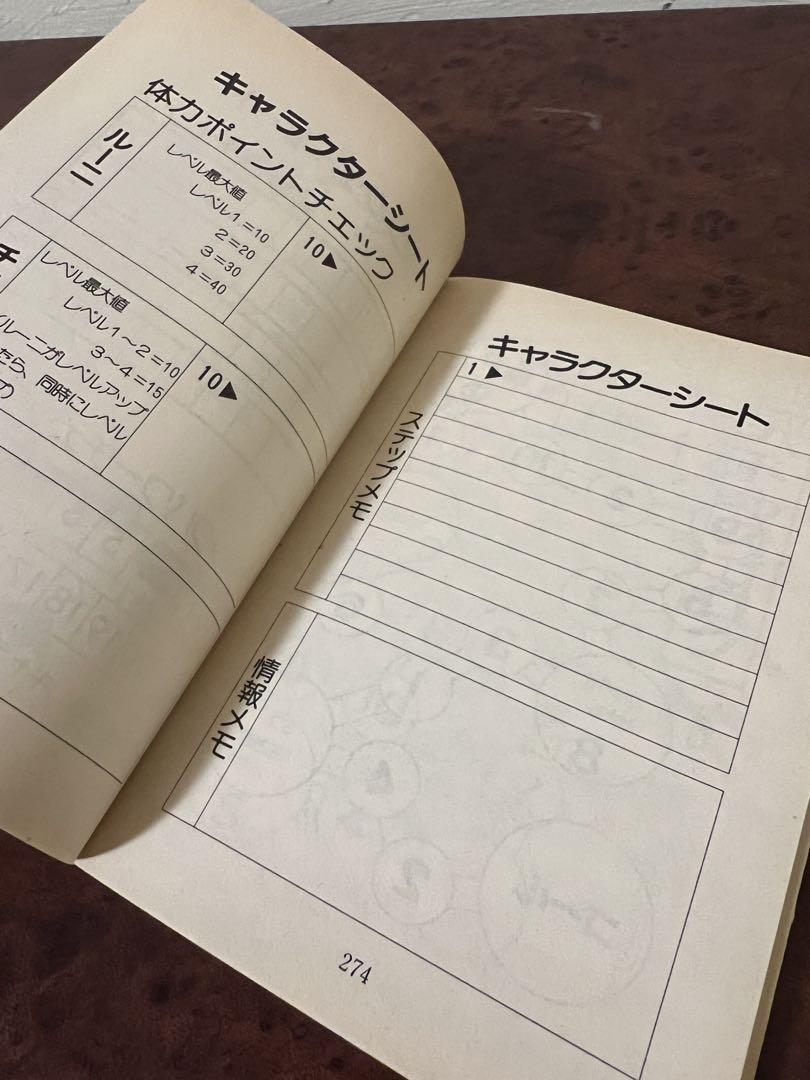 キャラクターシート
体力ポイントチェック
ルーニ
レベル最大値
レベル1=10
2=20
3=30
4=40
10▶
チ
レベル最大値
レベル1〜2=10
3〜4=15
ルーニがレベルアップ
たら、同時にレベル
10▶
キャラクターシート
ステップメモ
1▶
情報メモ
ゴール
2
4
8
274